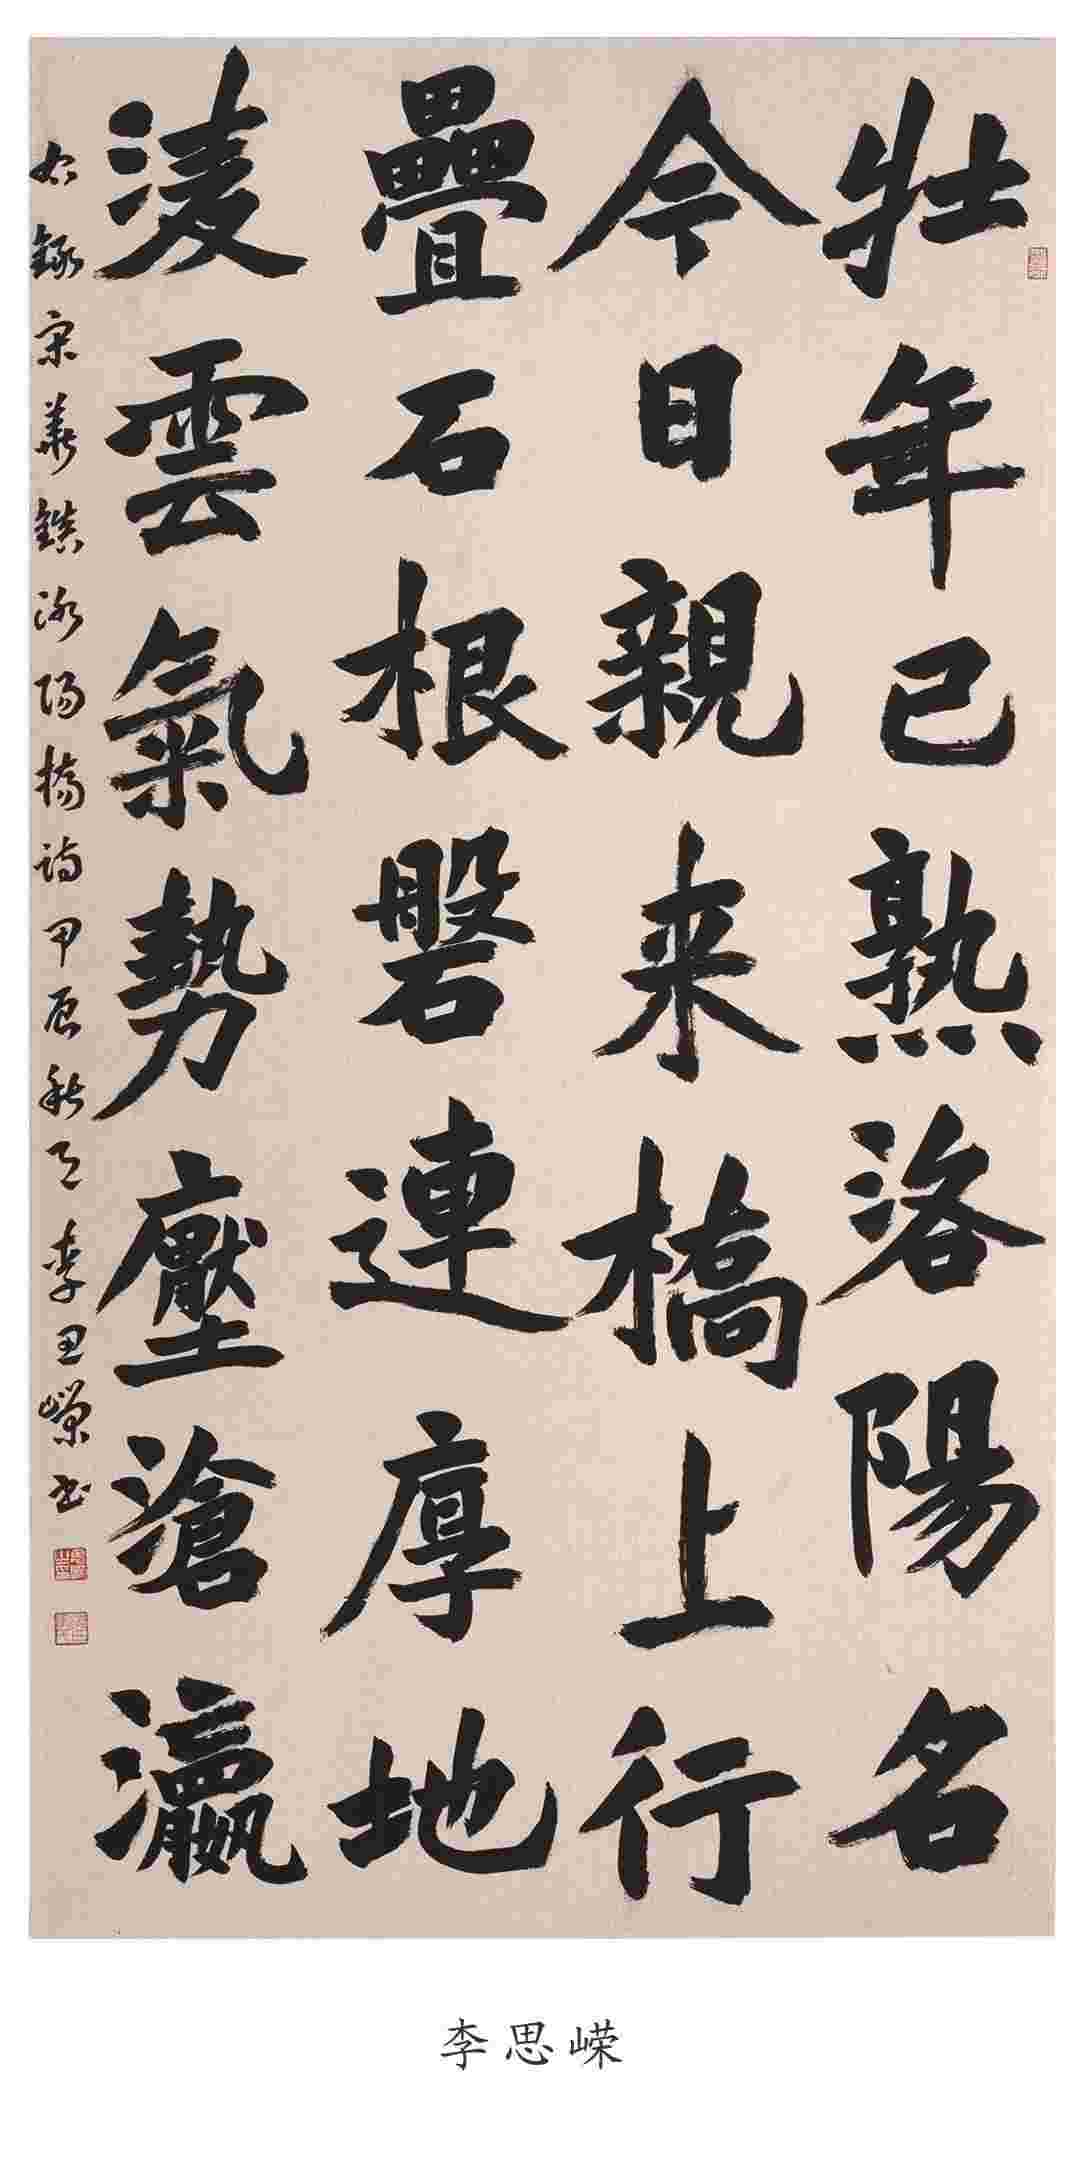 牡年已熟洛陽名
今日親来橋上行
疊石根磐連厚地
淩雲氣勢壓滄瀛
右録宋姜鍇洛陽橋詩甲辰秋月李思嶸書
李思嵘